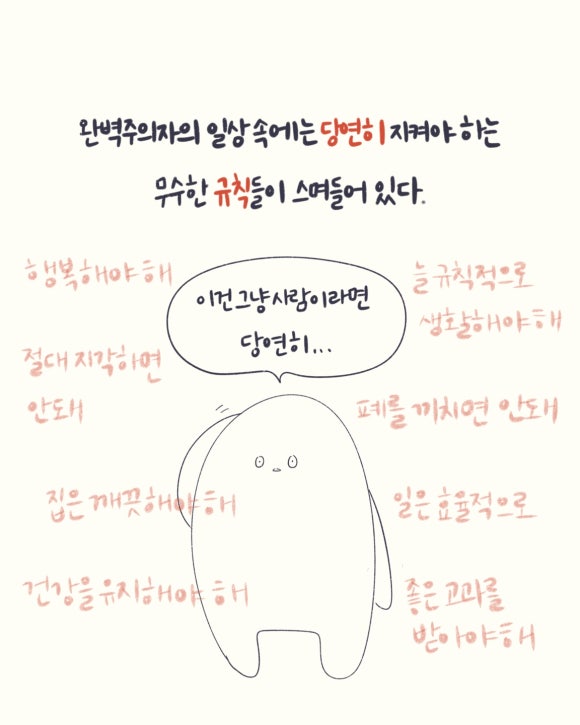 완벽주의자의 일상 속에는 당연히 지켜야 하는
무수한 규칙들이 스며들어 있다.
이건 그냥 사람이라면
당연히...
행복해야 해
절대 지각하면
안돼
집은 깨끗해야 해
건강을 유지해야 해
늘 규칙적으로
생활해야 해
폐를 끼치면 안돼
일은 효율적으로
좋은 고과를
받아야 해